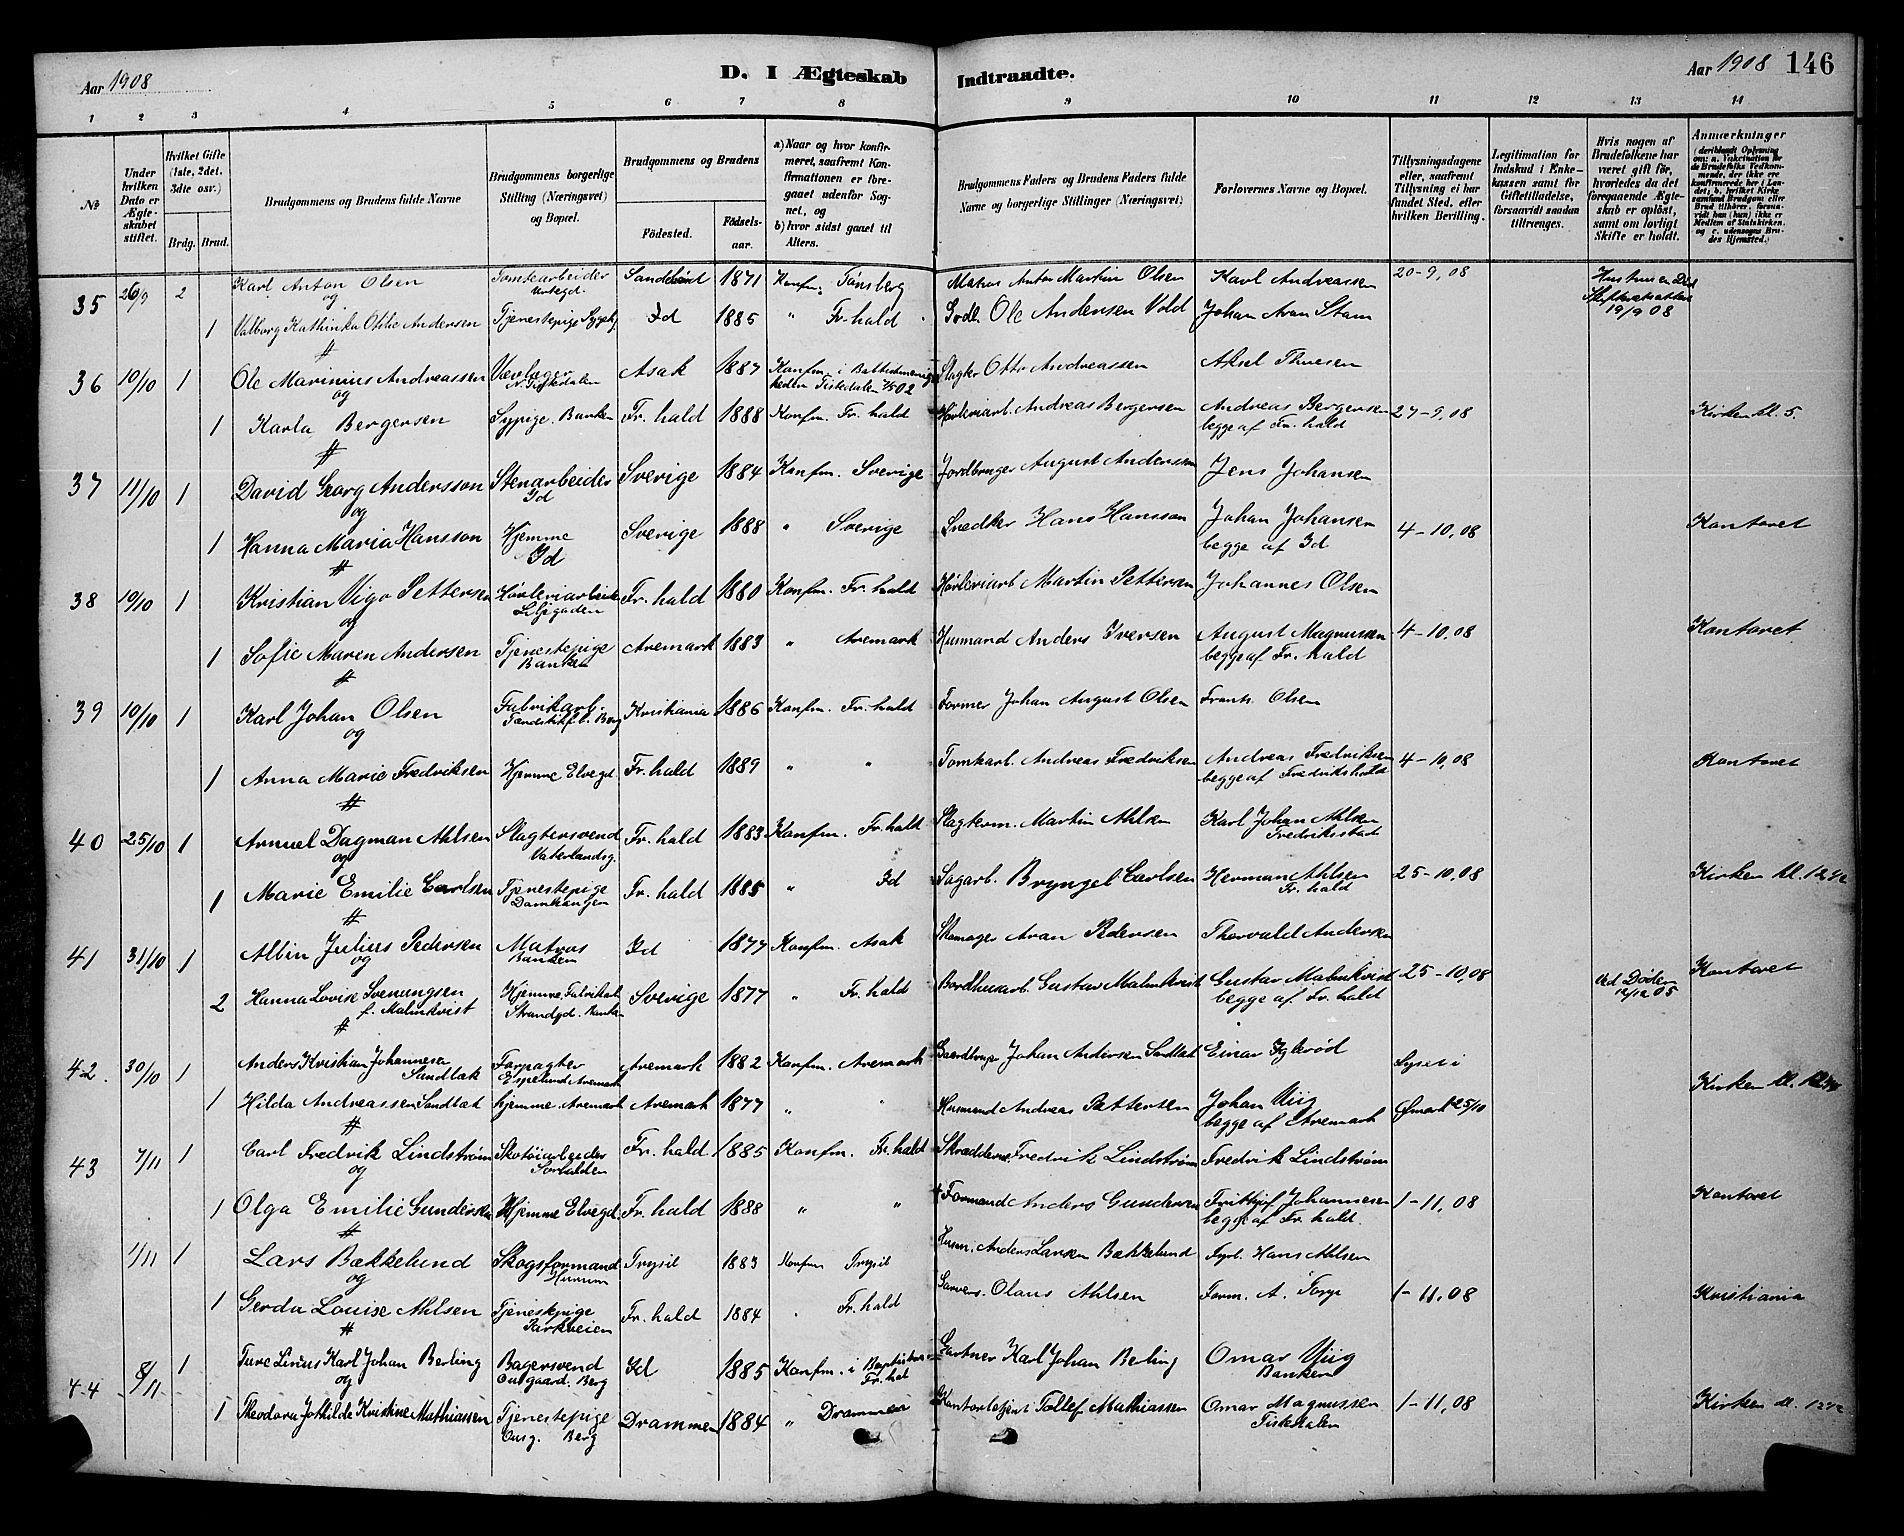 Aar 1908
D. I Ægteskab Indtraadte.
Aar 1908 146
1 2 3 4 5 6 7 8 9 10 11 12 13 14
No
Under hvilken Dato er Ægteskabet stiftet.
Hvilket Gifte (1ste, 2det, 3die osv.)
Brdg. Brud.
Brudgommens og Brudens fulde Navne
Brudgommens borgerlige Stilling (Næringsvei) og Bopæl.
Brudgommens og Brudens
Fødested. Fødselsaar.
a) Naar og hvor konfirmeret, saafremt Konfirmationen er foregaaet udenfor Sognet, og
b) hvor sidst gaaet til Alters.
Brudgommens Faders og Brudens Faders fulde Navne og borgerlige Stillinger (Næringsvei)
Forlovernes Navne og Bopæl.
Tillysningsdagene eller, saafremt Tillysning ei har fundet Sted, efter hvilken Bevilling.
Legitimation for Indskud i Enkekassen samt for Giftetilladelse, forsaavidt saadan tiltrænges.
Hvis nogen af Brudefolkene har været gift før, hvorledes da det foregaaende Ægteskab er opløst, samt om lovligt Skifte er holdt.
Anmærkninger
35 26/9 2 Karl Anton Olsen Tomtearbeider 1871 Konfm. Tønsberg Anton Martin Olsen Karl Andreassen 20-9, 08
og
1 Valborg Kathinka Otilie Andersen Tjenestepige Id 1885 " Fr.hald Ole Andersen Vold Johan Aran Stam 19/9 08
36 10/10 1 Ole Marinius Andreassen Asak 1887 Konfm. i Otto Andreassen Aksel Thuesen
og Tistedalen
1 Karla Bergersen Sypige. Banken Fr. hald 1888 Konfm. Fr. hald Høvleriarb. Andreas Bergersen Andreas Bergersen 27-9, 08 Kirken kl. 5.
begge af Fr. hald
37 11/10 1 David Georg Andersson Stenarbeider Sverige 1884 Konfm. Sverige Jordbruger August Andersson Jens Johansen
og Id
1 Hanna Maria Hansson Hjemme Sverige 1888 " Sverige Snedker Hans Hansson Johan Johansen 4-10, 08 Kontoret
Id begge af Id
38 10/10 1 Kristian Vigo Pettersen Høvleriarbeider Fr. hald 1880 Konfm. Fr. hald Høvleriarb. Martin Pettersen Johannes Olsen
og
1 Sofie Maren Andersen Tjenestepige Aremark 1883 " Aremark Husmand Anders Iversen August Magnussen 4-10, 08 Kontoret
Banken begge af Fr. hald
39 10/10 1 Karl Johan Olsen Fabrikarb. Kristiania 1886 Konfm. Fr. hald Former Johan August Olsen Frants Olsen
og
1 Anna Marie Fredriksen Hjemme Elvegd. Fr. hald 1889 " " Tomtarb. Andreas Fredriksen Andreas Fredriksen 4-10, 08 Kontoret
begge af Fredrikshald
40 25/10 1 Arnuel Dagman Ahlsen Slagtersvend Fr. hald 1883 Konfm. Fr. hald Martin Ahlsen Karl Johan Ahlsen
og Vaterlandsg. Fredriksstad
1 Marie Emilie Carlsen Tjenestepige Fr. hald 1885 " Id Sagarb. Bryngel Carlsen Herman Ahlsen 25-10, 08 Kirken kl. 12 1/2
Fr. hald
41 31/10 1 Albin Julius Pedersen Matros Id 1877 Konfm. Asak Skomager Aran Pedersen Thorvald Andersen
og Banken
2 Hanna Lovise Svenungsen Hjemme Sverige 1877 " Fr. hald Gustav Malmkvist Gustav Malmkvist 25-10, 08 Ved Døden Kontoret
f. Malmkvist Strandgd. begge af Fr. hald 12/12 05
42. 30/10 1 Anders Kristian Johannesen Forpagter Aremark 1882 Konfm. Aremark Johan Andersen Sandtak Einar Iglerød Lyset i
Sandtak
1 Hilda Andreassen Sandtak hjemme Aremark Aremark 1877 " " Husmand Andreas Pettersen Johan Wiig Ømark 25/10 Kirken kl. 12
begge af Aremark
43 7/11 1 Carl Fredrik Lindstrøm Skotøiarbeider Fr. hald 1885 Konfm. Fr. hald Fredrik Lindstrøm Fredrik Lindstrøm
og
1 Olga Emilie Gundersen Hjemme Elvegd. Fr. hald 1888 " " Formand Anders Gundersen Frithjof Johannesen 1-11, 08 Kontoret
begge af Fr. hald.
1/11 1 Lars Bækkelund Skogsformand Trysil 1883 Konfm Trysil Husm. Anders Larsen Bækkelund Hans Ahlsen
og Hurum
1 Gerda Louise Ahlsen Tjenestepige Fr. hald 1884 " Fr. hald Olaus Ahlsen Form. A. Torp 1-11, 08 Kristiania
Parkveien
44 8/11 1 Ture Linus Karl Johan Berling Bagersvend Id 1885 Konfm. i Gartner Karl Johan Berling Omar Wiig
og Berg Fr. hal Banken
1 Theodora Jothilde Kristine Mathiassen Tjenestepige Drammen 1884 " Drammen Kontorbetjent Tollef Mathiassen Omar Magnussen 1-11, 08 Kirken kl. 12 1/2
Berg Tistedalen